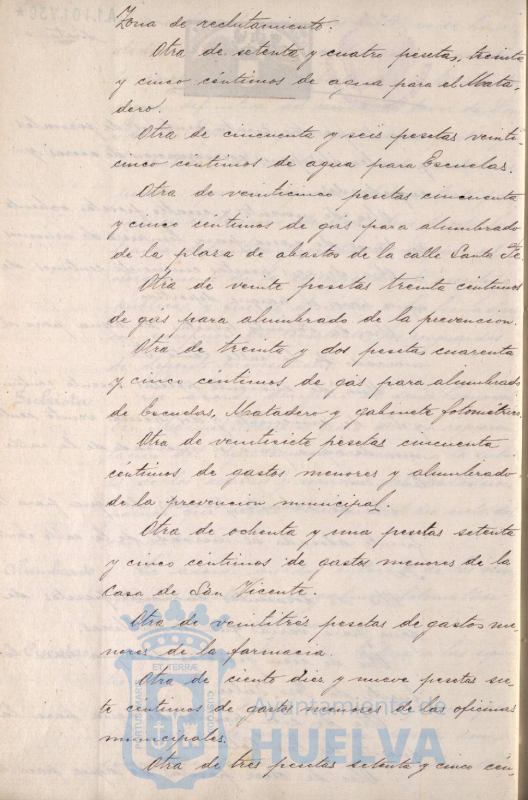 Zona de reclutamiento.
Otra de setenta y cuatro pesetas, treinta
y cinco céntimos de agua para el Mata-
dero.
Otra de cincuenta y seis pesetas veinti-
cinco céntimos de agua para Escuelas.
Otra de veinticinco pesetas cincuenta
y cinco céntimos de gas para alumbrado
de la plaza de abastos de la calle Santa Fe
Otra de veinte pesetas treinta céntimos
de gas para alumbrado de la prevencion.
Otra de treinta y dos pesetas cuarenta
y cinco céntimos de gas para alumbrado
de Escuelas, Matadero y gabinete fotométrico.
Otra de veintisiete pesetas cincuenta
céntimos de gastos menores y alumbrado
de la prevencion municipal.
Otra de ochenta y una pesetas setenta
y cinco céntimos de gastos menores de la
Casa de San Vicente.
Otra de veintitrés pesetas de gastos me-
nores de la farmacia.
Otra de ciento diez y nueve pesetas sie-
te céntimos de gastos menores de las oficinas
municipales.
Otra de tres pesetas setenta y cinco cén-
PORTUS MARIS ET TERRÆ CUSTODIO
Ayuntamiento de
HUELVA